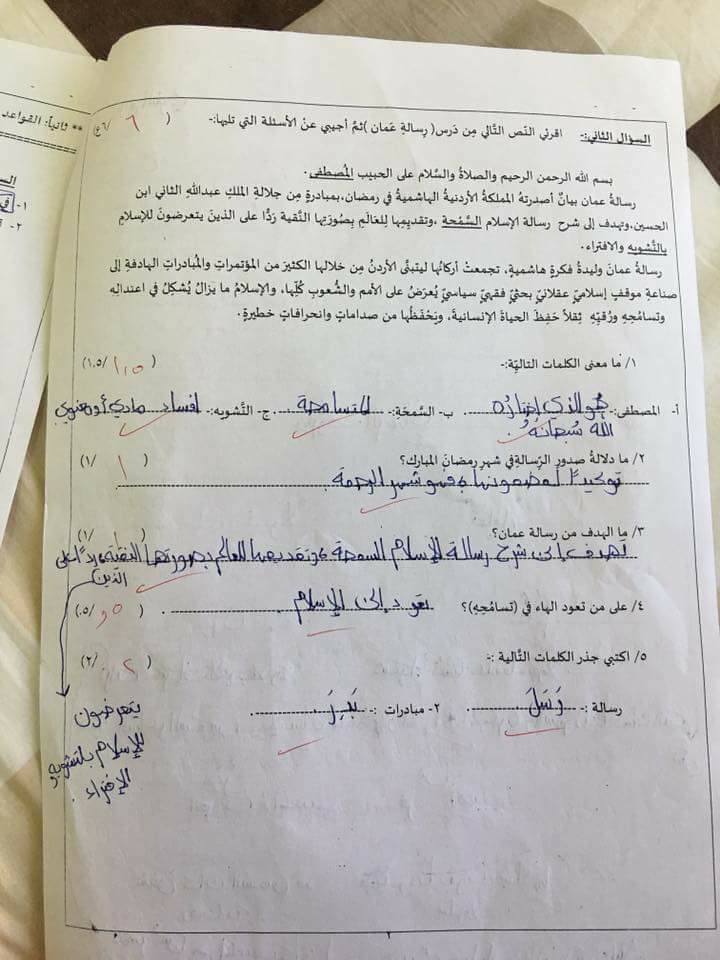 ** ثانياً: القواعد
السؤال الثاني:- اقرئي النَص التَّالي مِن دَرس( رِسالةِ عَمان )ثمَّ أجيبي عنْ الأسئلة التي تليها:- ( ٦ /٦ع)
بسم الله الرحمن الرحيم والصلاةُ والسَّلام على الحبيب المُصطفى .
رسالةُ عمان بيانٌ أصدرتهُ المملكةُ الأردنيةُ الهاشميةُ في رمضان،بمبادرةٍ من جلالةِ الملكِ عبداللهِ الثاني ابن
الحسين،وتهدف إلى شرح رسالة الإسلام السَّمْحة ،وتقديمِها للِعَالمِ بِصُورَتِها النَّقية رَدًّا على الذينَ يتعرضونَ للإسلامِ
بالتَّشويه والافتراء.
رسالةُ عمانَ وليدةُ فكرةٍ هاشميةٍ، تجمعتْ أركانُها ليتبنَّى الأردنُ مِن خلالها الكثيرَ من المؤتمراتِ والمُبادراتِ الهادفةِ إلى
صناعةِ موقفٍ إسلاميٍّ عقلانيٍّ بحثيٍّ فقهيٍّ سياسيٍّ يُعرَضُ على الأممِ والشُّعوبِ كُلِّها، والإسلامُ ما يَزالُ يُشكِلُ في اعتدالِهِ
وتسامُحِهِ ورُقيِّهِ ثِقلاً حَفِظَ الحياةَ الإنسانيةَ، ويَحْفَظُها من صداماتٍ وانحرافاتٍ خطيرةٍ.
١/ ما معنى الكلمات التالية:- ( ١,٥ /١.٥)
أ- المصطفى:- هو الذي اختاره ب- السَّمحَة:- المتسامحة ج- التَّشويه:- افساد مادي أو معنوي
الله سُبحانهُ
٢/ ما دلالةُ صدورِ الرِّسالةِ في شهرِ رمضانَ المباركِ؟ ( ١ /١)
توكيدًا لمضمونها، فهو شهر الرحمة
٣/ ما الهدف من رسالة عمان؟ ( ١ /١)
تهدف إلى شرح رسالة الإسلام السمحة، وتقديمها للعالم بصورتها النقية، ردًا على
الذين
٤/ على من تعود الهاء في (تسامُحِهِ)؟ يعود إلى الإسلام . ( ٠,٥ /٠.٥)
٥/ اكتبي جذر الكلمات التَّالية :- ( ٢ /٢)
رسالة :- رَسَلَ ٢- مبادرات :- بَدَرَ
يتعرضون
للإسلام بالتشويه و
الإفتراء .